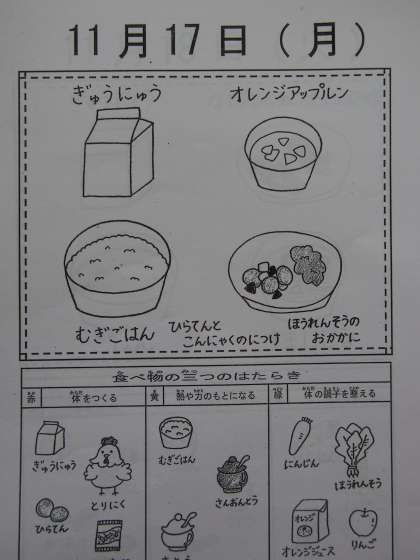 11月17日(月)
ぎゅうにゅう
オレンジアップルン
むぎごはん
ひらてんと
こんにゃくのにつけ
ほうれんそうの
おかかに
食べ物の三つのはたらき
赤 体をつくる
黄 熱や力のもとになる
緑 体の調子を整える
ぎゅうにゅう
とりにく
ひらてん
むぎごはん
さんおんとう
にんじん
ほうれんそう
オレンジ
オレンジジュース
りんご